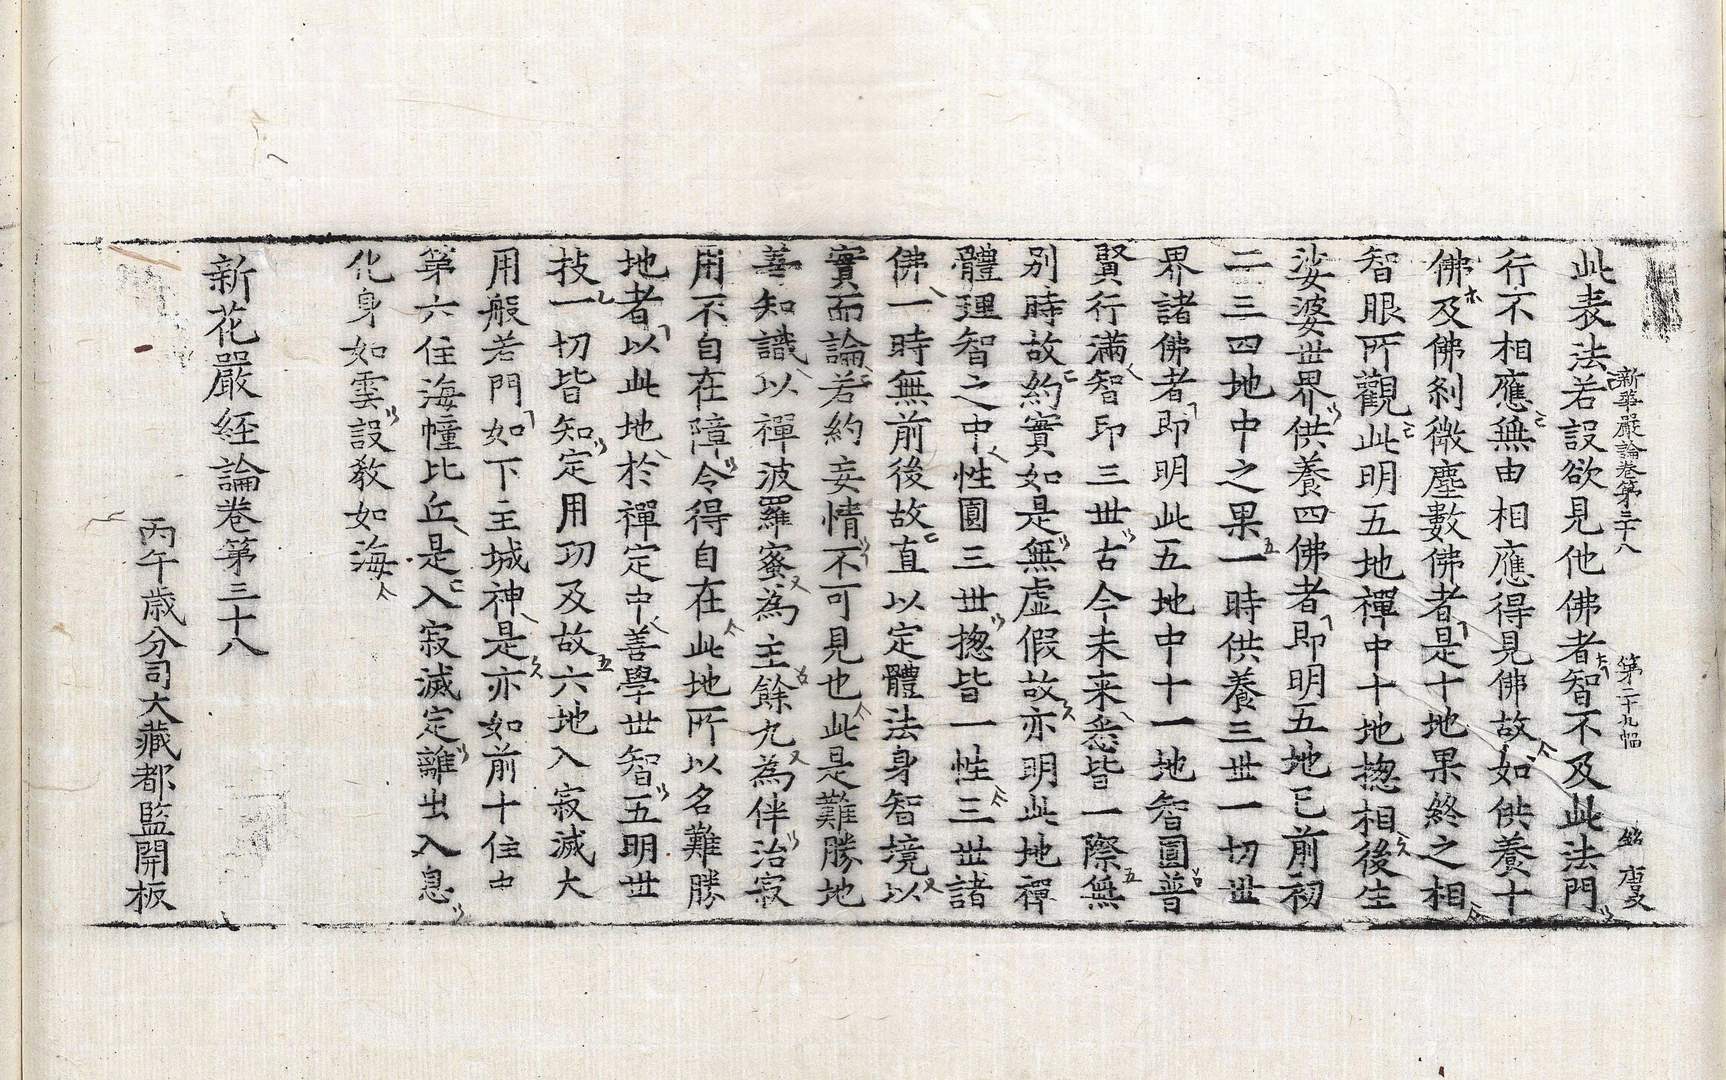 新華嚴論卷第三十八 第二十九幅
此表法若設欲見他佛者智不及此法門
行不相應無由相應得見佛故如供養十
佛及佛刹微塵數佛者是十地果終之相
智眼所觀此明五地禪中十地揔相後生
娑婆世界供養四佛者即明五地已前初
二三四地中之果一時供養三世一切世
界諸佛者即明此五地中十一地智圓普
賢行滿智印三世古今未来悉皆一際無
別時故約實如是無虛假故亦明此地禪
體理智之中性圓三世揔皆一性三世諸
佛一時無前後故直以定體法身智境以
實而論若約妄情不可見也此是難勝地
善知識以禪波羅蜜為主餘九為伴治寂
用不自在障令得自在此地所以名難勝
地者以此地於禪定中善學世智五明世
技一切皆知定用功及故六地入寂滅大
用般若門如下主城神是亦如前十住中
第六住海幢比丘是入寂滅定離出入息
化身如雲設教如海
新花嚴經論卷第三十八
丙午歲分司大藏都監開板